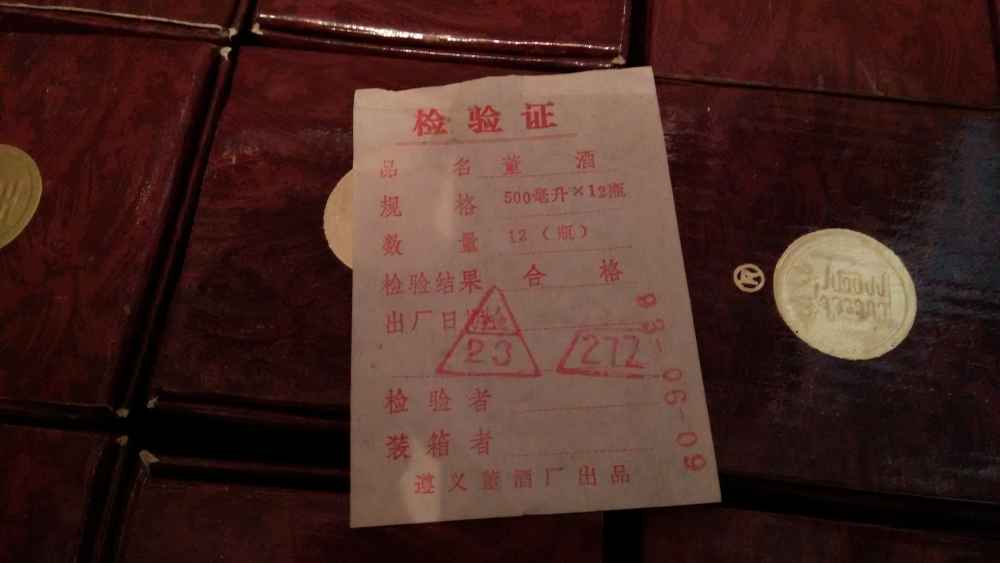 检验证
品名 董酒
规格 500毫升×12瓶
数量 12(瓶)
检验结果 合格
出厂日期
检
23
272
93-06-09
检验者
装箱者
遵义董酒厂出品
R